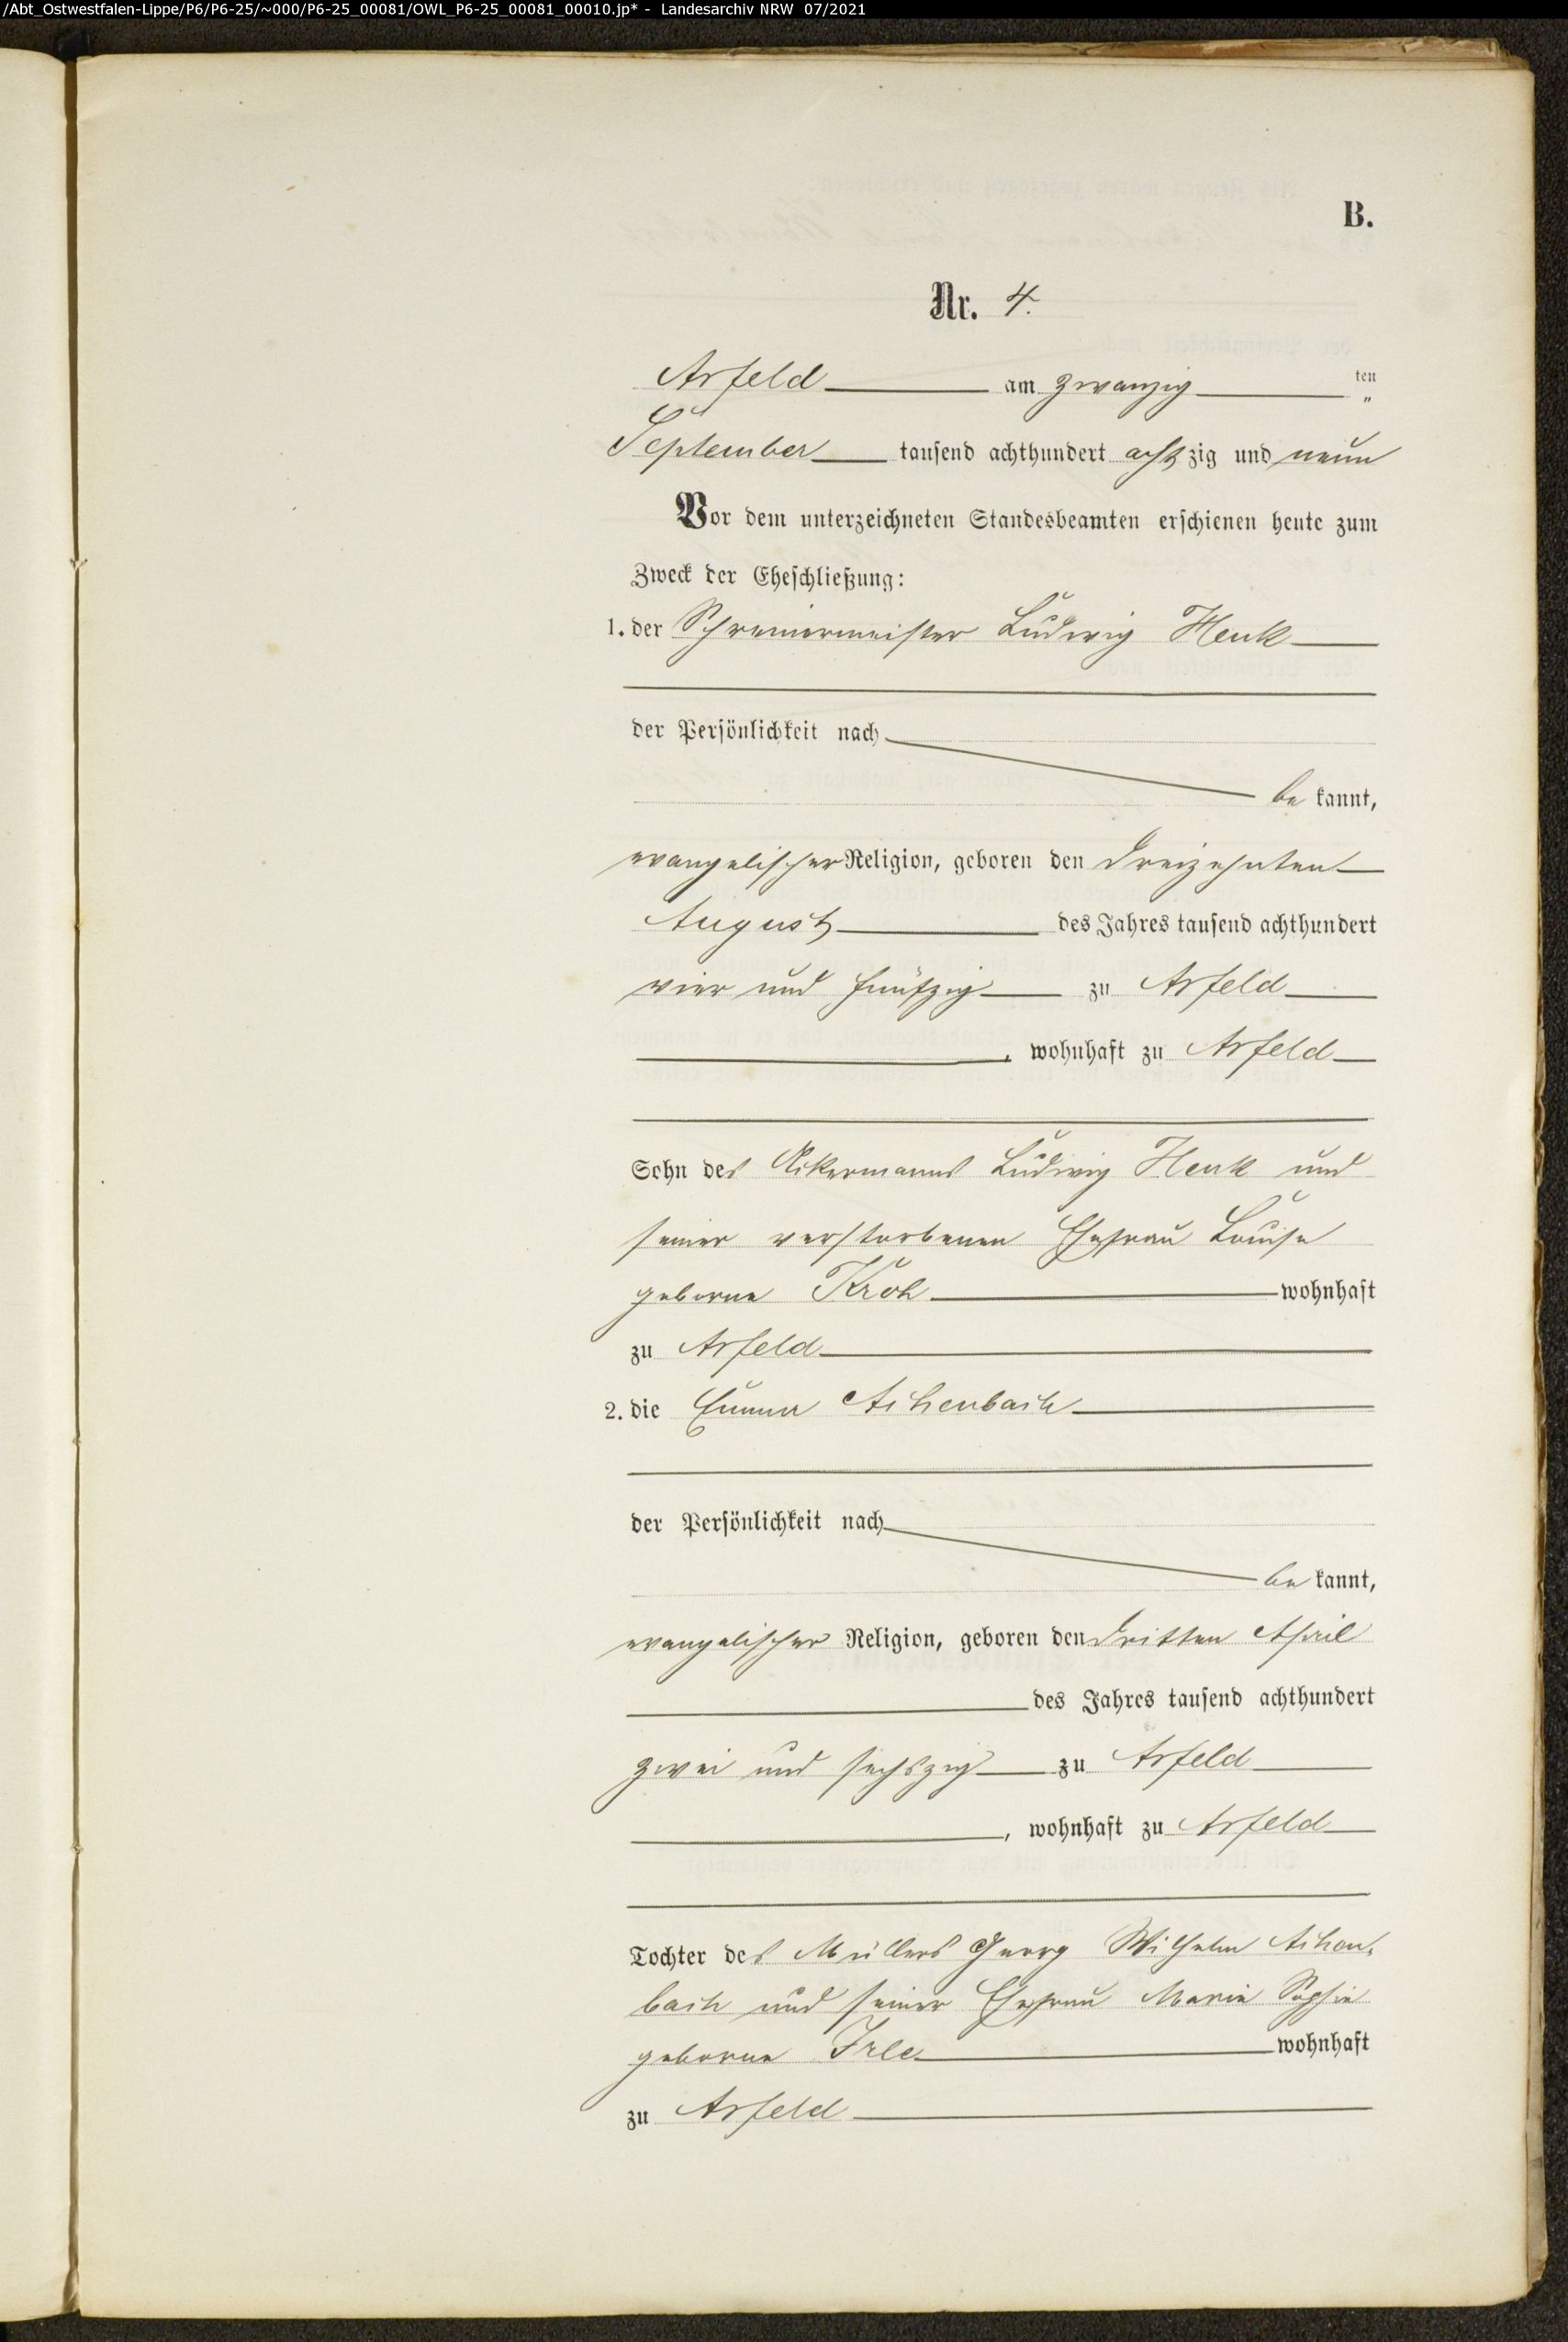 /Abt_Ostwestfalen-Lippe/P6/P6-25/~000/P6-25_00081/OWL_P6-25_00081_00010.jp* - Landesarchiv NRW 07/2021
B.
Nr. 4.
Arfeld am zwanzig ten "
September tausend achthundert achtzig und neun
Vor dem unterzeichneten Standesbeamten erschienen heute zum
Zweck der Eheschließung:
1. der Schreinermeister Ludwig Henk
der Persönlichkeit nach
be kannt,
evangelischer Religion, geboren den dreizehnten
August des Jahres tausend achthundert
vier und fünfzig zu Arfeld
, wohnhaft zu Arfeld
Sohn des Ackermanns Ludwig Henk und
seiner verstorbenen Ehefrau Louise
geborne Kroh wohnhaft
zu Arfeld
2. die Emma Achenbach
der Persönlichkeit nach
be kannt,
evangelischer Religion, geboren den dritten April
des Jahres tausend achthundert
zwei und sechszig zu Arfeld
, wohnhaft zu Arfeld
Tochter des Müllers Georg Wilhelm Achen-
bach und seiner Ehefrau Marie Sophie
geborne Irle wohnhaft
zu Arfeld